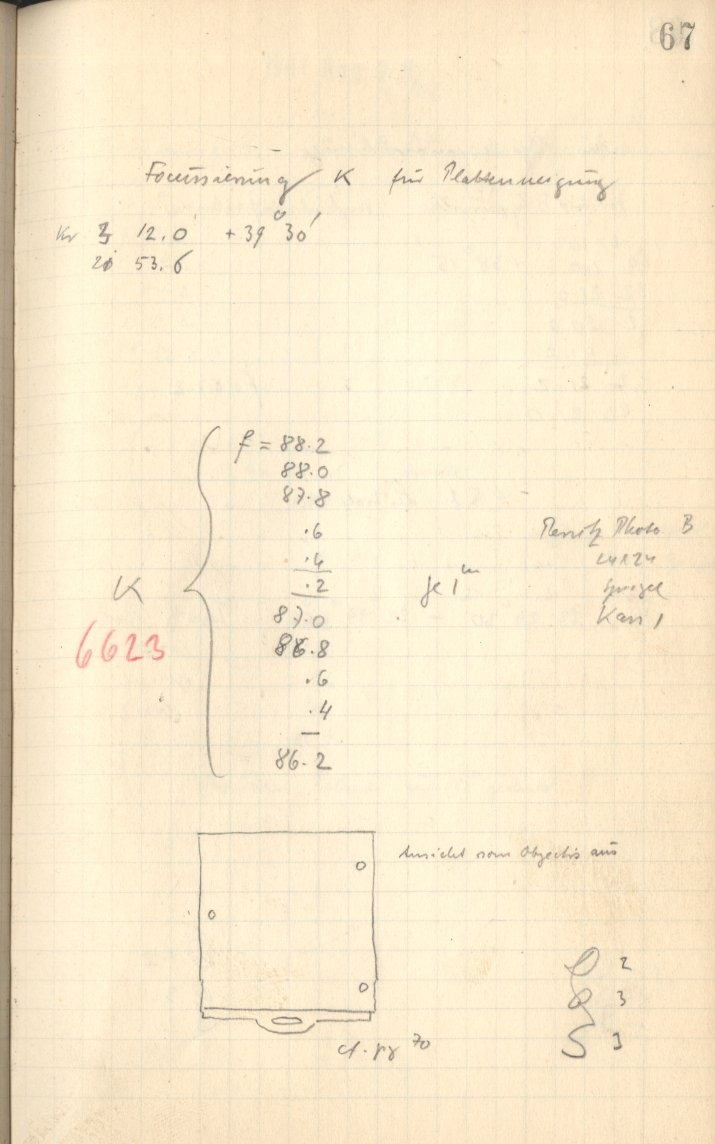 67
Focussierung K für Plattenneigung
Kr 3 12.0 + 39° 30'
21 53.6
f = 88.2
88.0
87.8
.6
.4
.2
87.0
86.8
.6
.4
—
86.2
K
6623
je 1 m
Photo B
24x24
Spiegel
Kass 1
Ansicht vom Objectiv aus
cf. pg 70
2
3
3